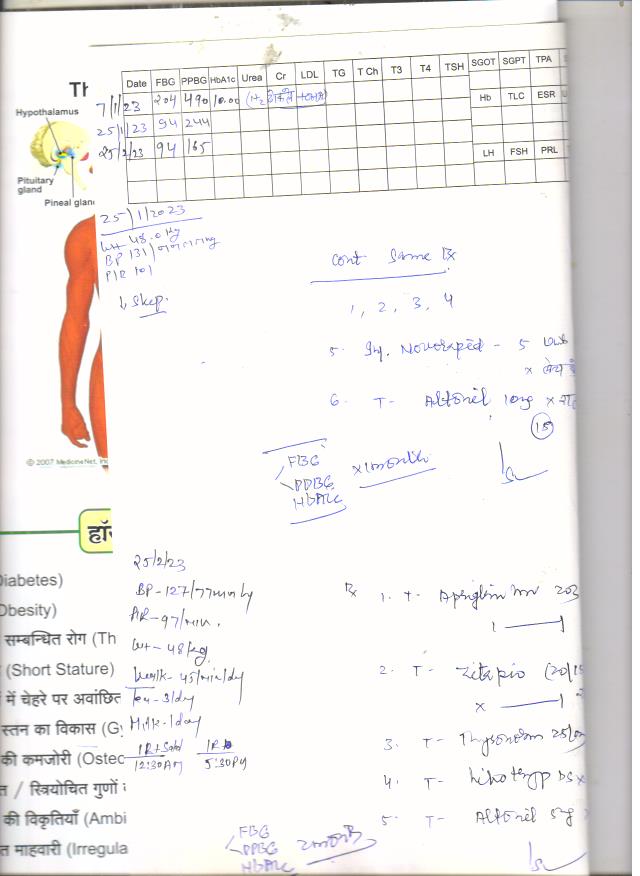 Th
Hypothalamus
Pituitary
gland
Pineal glan
© 2007 MedicineNet, Inc
Date FBG PPBG HbA1c Urea Cr LDL TG T Ch T3 T4 TSH SGOT SGPT TPA
7/1/23 204 490 10.00
Hb TLC ESR
25/1/23 94 244
25/2/23 94 165
LH FSH PRL
25/1/2023
Wt 48.0 kg
BP 131/
P/R 101
↓ Sleep.
Cont Same Rx
1, 2, 3, 4
5. Inj. Novorapid - 5
6. T- Altonil 10mg x
15
FBG
PPBG x 1 month
HbA1c
हॉर
Diabetes)
Obesity)
सम्बन्धित रोग (Th
(Short Stature)
में चेहरे पर अवांछित
स्तन का विकास (Gy
की कमजोरी (Osteo
त / स्त्रियोचित गुणों
की विकृतियाँ (Ambi
त माहवारी (Irregula
25/2/23
BP-127/77mmHg
PR-97/min.
Wt-48kg
Walk-45/min/day
Tea-3/day
Milk-1day
1R+Sabd 1R
12:30AM 5:30PM
Rx 1. T-
1
2. T- Zitapio (20/15
x 1
3. T- Thysonorm 25
4. T- DS x
5. T- Altonil 5
FBG
PPBG 2 month
HbA1c